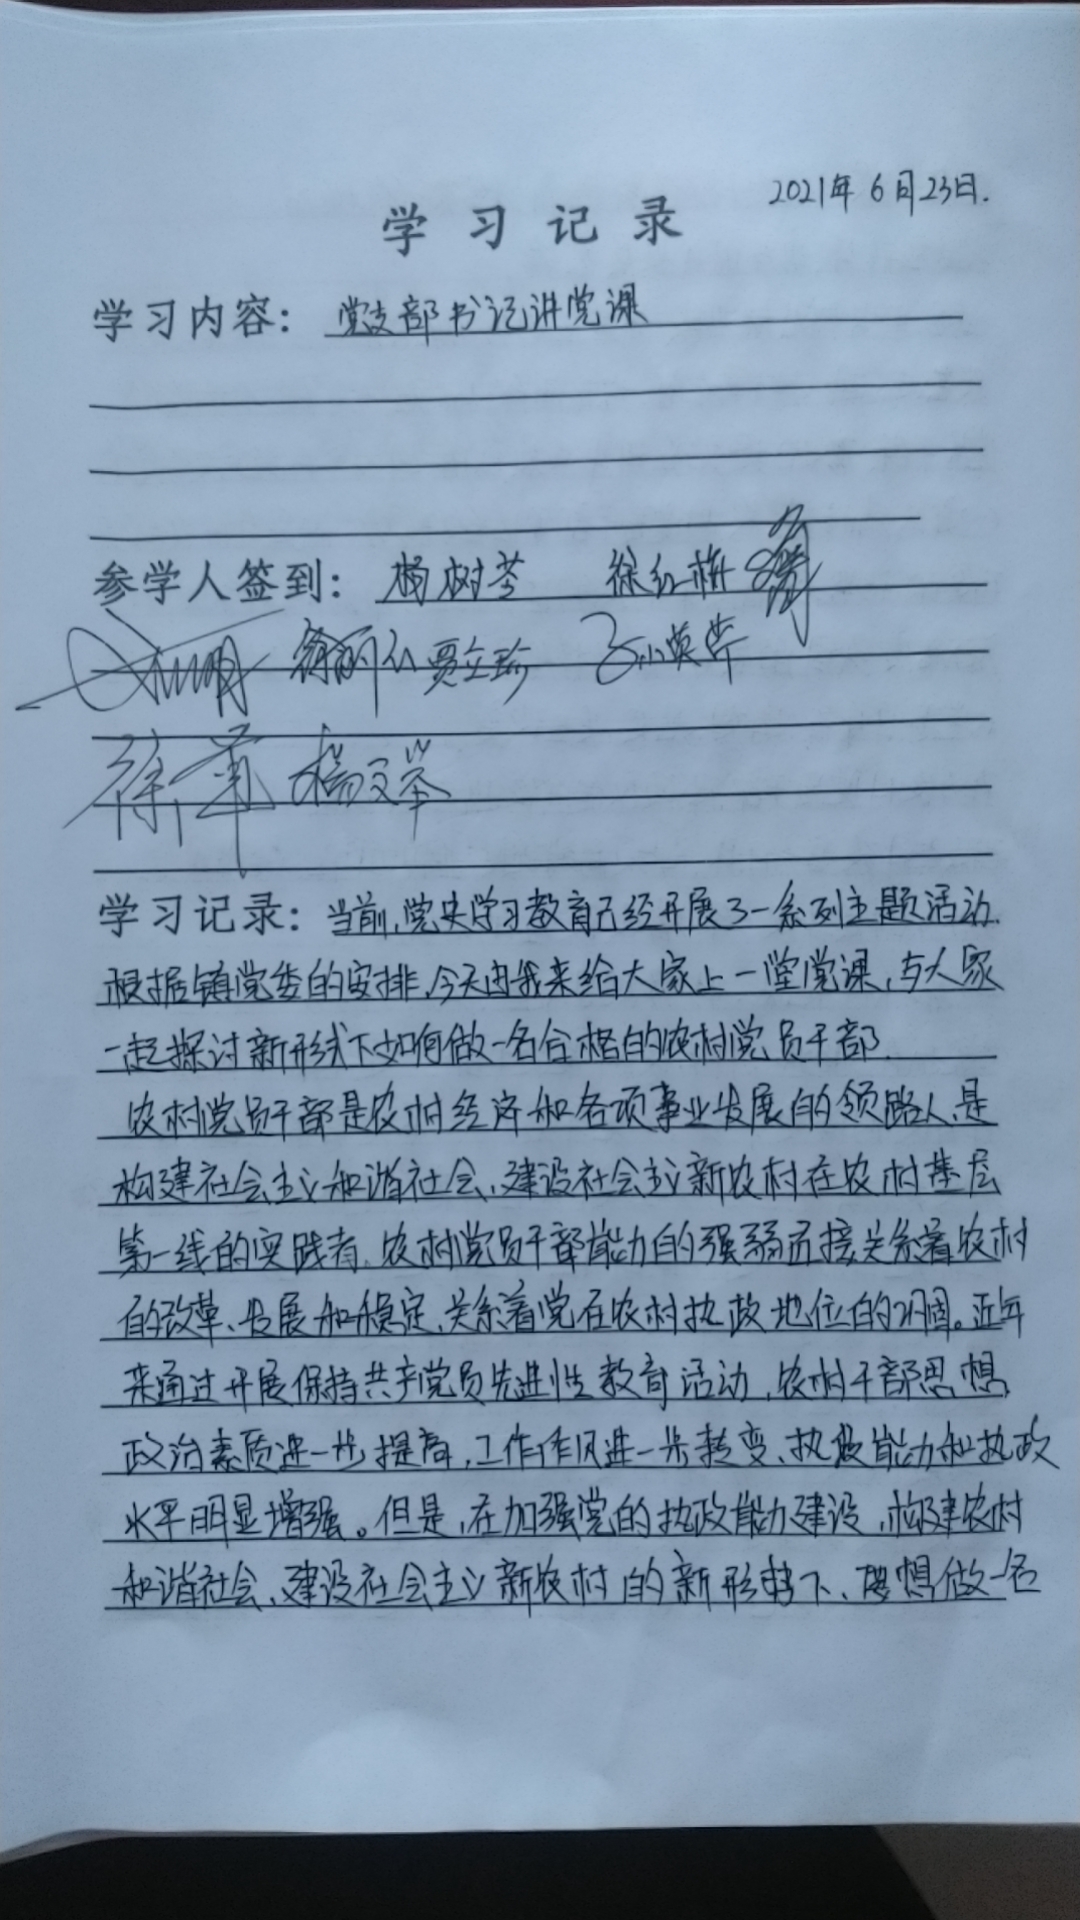 2021年6月23日.
学习记录
学习内容：党支部书记讲党课
参学人签到：杨树芩 徐红梅
贾立珍 孙英华
徐军 杨文举
学习记录：当前,党史学习教育已经开展了一系列主题活动.
根据镇党委的安排,今天由我来给大家上一堂党课,与大家
一起探讨新形式下如何做一名合格的农村党员干部.
农村党员干部是农村经济和各项事业发展的领路人是
构建社会主义和谐社会、建设社会主义新农村在农村基层
第一线的实践者.农村党员干部能力的强弱直接关系着农村
的改革、发展和稳定,关系着党在农村执政地位的巩固。近年
来通过开展保持共产党员先进性教育活动,农村干部思想
政治素质进一步提高,工作作风进一步转变、执政能力和执政
水平明显增强。但是,在加强党的执政能力建设,构建农村
和谐社会、建设社会主义新农村的新形势下、要想做一名